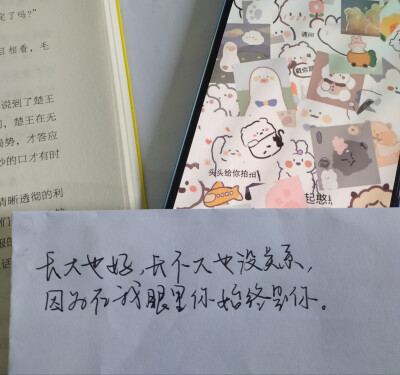 完了吗？”
目相看，毛
说到了楚王
楚王在无
局势，才答应
妙的口才有时
清晰透彻的利
请问
头头给你拍拍
起憨!
长大也好，长不大也没关系，
因为在我眼里你始终是你。